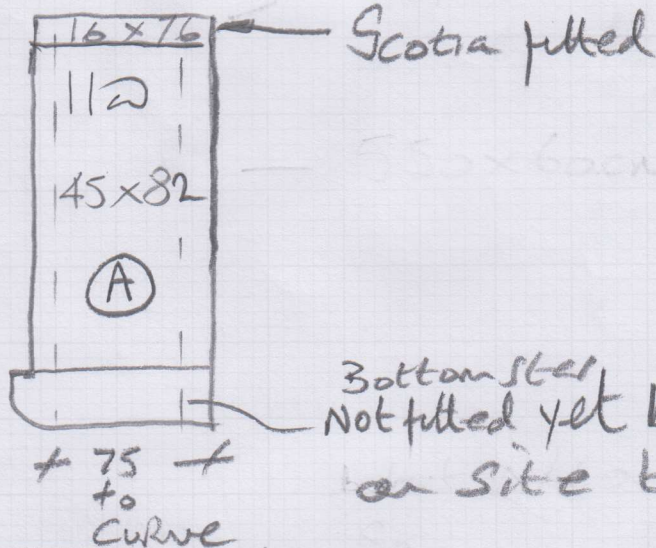 16 x 76
Scotia fitted
11
45 x 82
A
Bottom Step
Not fitted yet
on site
75
to
CURVE